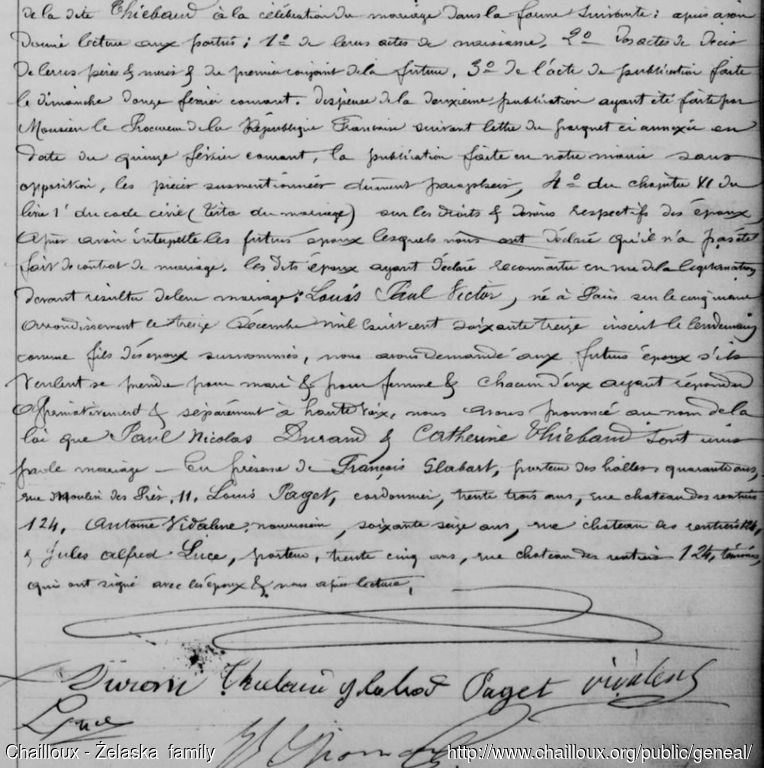 de la dite Thiebaud à la célébration du mariage dans la forme suivante : après avoir
donné lecture aux parties ; 1º de leurs actes de naissance. 2º des actes de décès
de leurs pères & mères & du premier conjoint de la future. 3º de l'acte de publication faite
le dimanche douze février courant. dispense de la deuxième publication ayant été faite par
Monsieur le Procureur de la République Française suivant lettre du parquet ci annexée en
date du quinze février courant, la publication faite en notre mairie sans
opposition, les pièces susmentionnées dûment paraphées, 4º du chapitre VI du
livre 1º du code civil (titre du mariage) sur les droits & devoirs respectifs des époux,
Après avoir interpellé les futurs époux lesquels nous ont déclaré qu'il n'a pas été
fait de contrat de mariage. les dits époux ayant déclaré reconnaître en vue de la légitimation
devant résulter de leur mariage : Louis Paul Victor, né à Paris sur le cinquième
arrondissement le treize décembre mil huit cent soixante treize inscrit le lendemain
comme fils des époux surnommés, nous avons demandé aux futurs époux s'ils
veulent se prendre pour mari & pour femme & chacun d'eux ayant répondu
affirmativement & séparément à haute voix, nous avons prononcé au nom de la
loi que Paul Nicolas Durand & Catherine Thiebaud sont unis
par le mariage — En présence de François Glabast, porteur des halles, quarante ans,
rue Moulin des Prés, 11, Louis Paget, cordonnier, trente trois ans, rue chateau des rentiers
124, Antoine Vidalenc, soixante seize ans, rue chateau des rentiers 124,
& Jules alfred Luce, porteur, trente cinq ans, rue chateau des rentiers 124, témoins,
qui ont signé avec les époux & nous après lecture,
Durand Thiebaud Paget Vidalenc
Luce
Chailloux - Żelaska family http://www.chailloux.org/public/geneal/